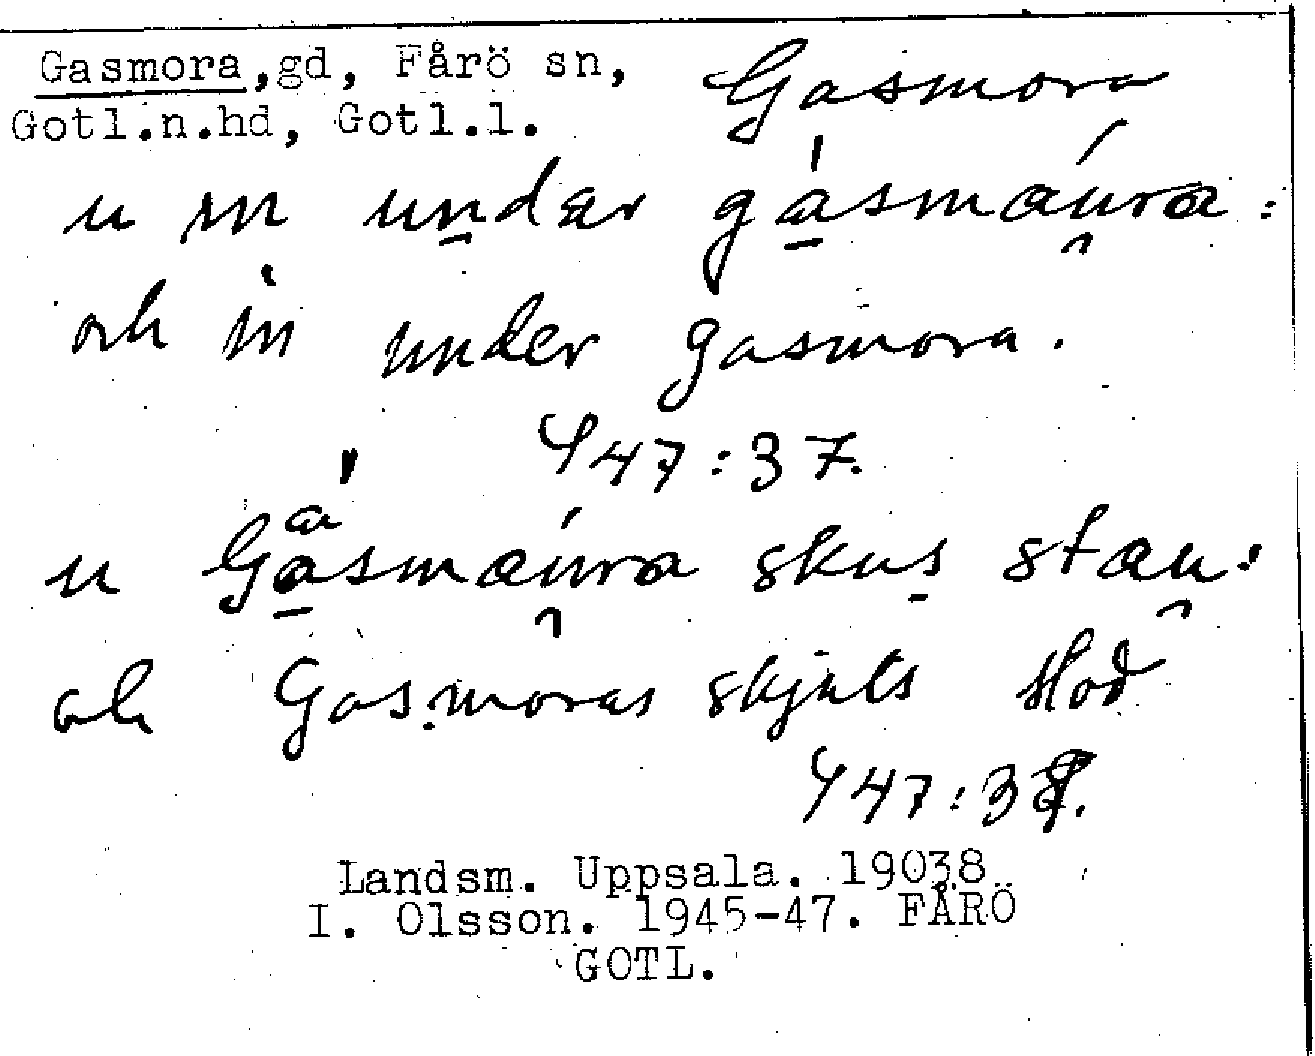 Gasmora, gd, Fårö sn,
Gasmora
Gotl.n.hd, Gotl.l.
u in undar gasmaura:
och in under gasmora.
447:37.
u Gasmaura skus stau:
och Gasmoras skjuts stod
447:38.
Landsm. Uppsala. 19038
I. Olsson. 1945-47. FÅRÖ
GOTL.